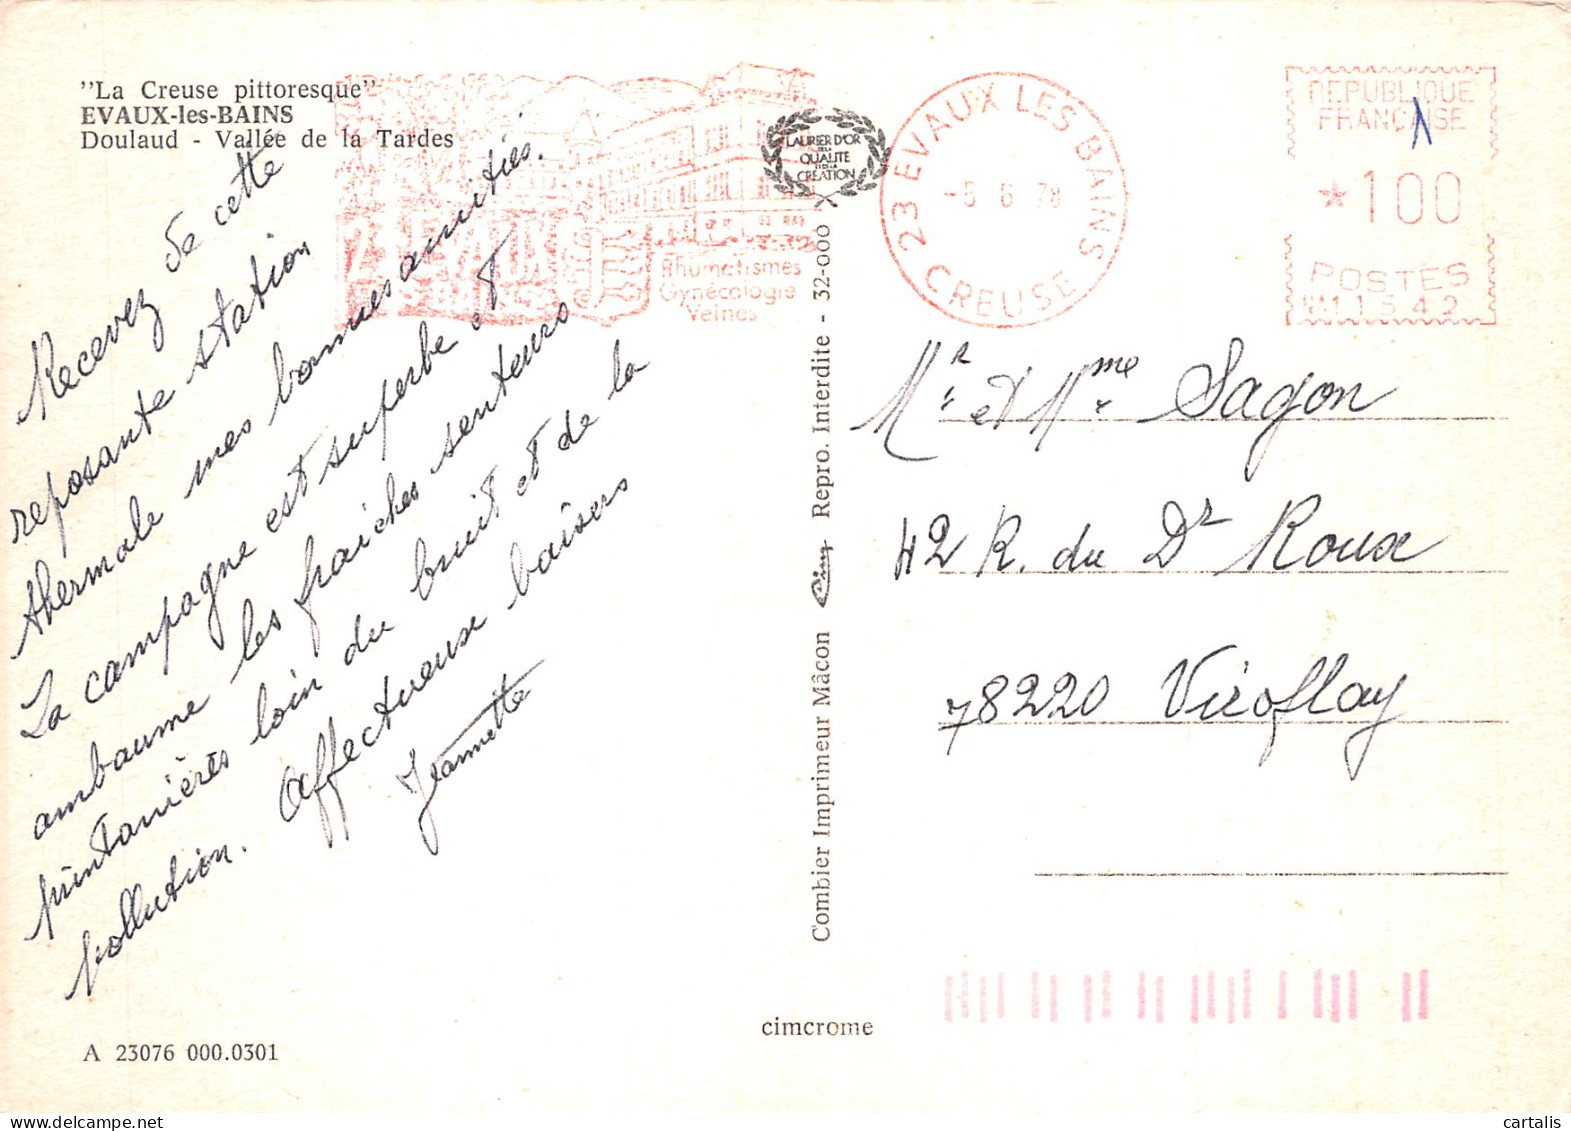 "La Creuse pittoresque"
EVAUX-les-BAINS
Doulaud - Vallée de la Tardes
Recevez de cette
reposante station
thermale mes bonnes amitiés.
La campagne est superbe et
embaume les fraiches senteurs
printanières loin du bruit et de la
pollution. Affectueux baisers
Jeannette
A 23076 000.0301
23 EVAUX
LES BAINS
Rhumatismes
Gynécologie
Veines
LAURIER D'OR
DE LA
QUALITE
ET DE LA
CREATION
23 EVAUX LES BAINS
-5 6 78
CREUSE
REPUBLIQUE
FRANÇAISE
*100
POSTES
11342
Combier Imprimeur Mâcon Cim Repro. Interdite - 32-000
Mr et Mme Sagon
42 R. du Dr Roux
78220 Viroflay
cimcrome
cartalis
delcampe.net